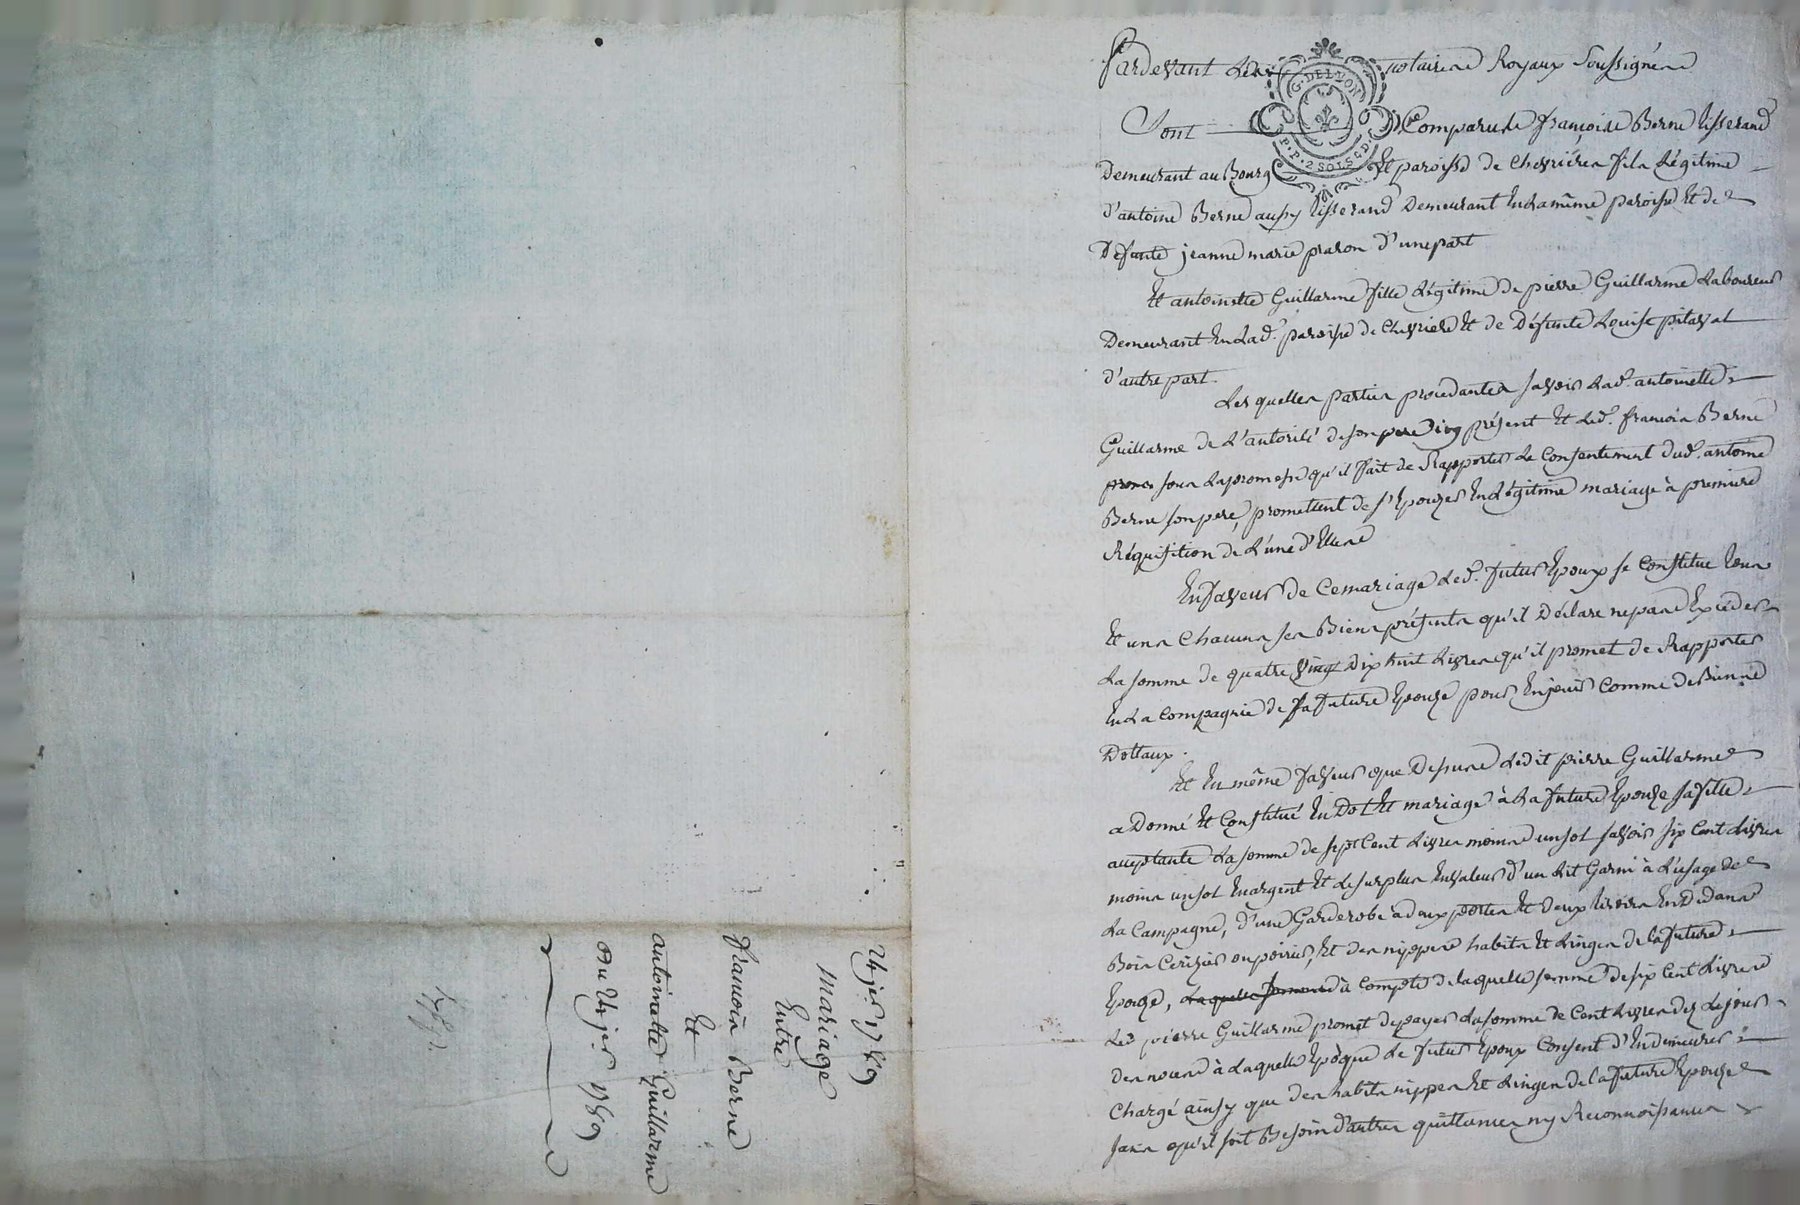 Pardevant Les notaires Royaux Soussignés
G. DE LYON
P.P. 2 SOLS 4 D.
Sont Comparus françois Berne tisserand
Demeurant au Bourg Et paroisse de Chevrières fils Légitime
d'antoine Berne aussy tisserand Demeurant En La même paroisse Et de
Défunte jeanne marie praron d'une part
Et antoinette Guillarme fille Légitime de pierre Guillarme Laboureur
Demeurant En Lad. paroisse de Chevriere Et de Défunte Louise pitaval
d'autre part.
Les quelles parties procedantes savoir Lad. antoinette
Guillarme de L'autorité de son pere icy présent Et Led. françois Berne
sous La promesse qu'il fait de Rapporter Le Consentement dud. antoine
Berne son pere, promettent de s'Epouzer En Légitime mariage à premiere
Réquisition de L'une d'Elles
En faveur de Ce mariage Led. futur Epoux se Constitue tous
Et uns Chacuns ses Biens présents qu'il Déclare ne pas Excéder
La somme de quatre vingt Dix huit Livres qu'il promet de Rapporter
En La Compagnie de sa future Epouze pour En jouir Comme de Biens
Dottaux.
Et En même faveur que Dessus Ledit pierre Guillarme
a Donné Et Constitué En Dot Et mariage à La future Epouze sa fille
acceptante La somme de sept Cent Livres moins un sol savoir six Cent Livres
moins un sol En argent Et Le surplus En valeur d'un Lit Garni à L'usage de
La Campagne, d'une Garderobe à deux portes Et deux tiroirs En Dedans
Bois Cerizier ou poirier, Et des nippes habits Et Linges de la future
Epouze, Laquelle somme à Compte de laquelle somme de six Cent Livres
Led. pierre Guillarme promet de payer La somme de Cent Livres dez Le jour
des noces à Laquelle Epoque Le futur Epoux Consent d'En demeurer
Chargé ainsy que des habits nippes Et Linges de la future Epouze
sans qu'il soit Besoin d'autres quittances ny Reconnoissances
24 jer. 1789
Mariage
Entre
françois Berne
Et
antoinette Guillarme
Du 24 jer. 1789
1789.